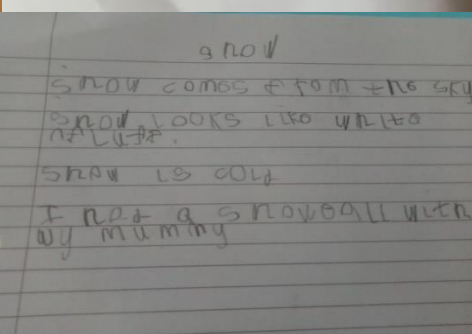 snow
snow comes from the sky
snow looks like white
fluff.
snow is cold
I had a snowball with
my mummy